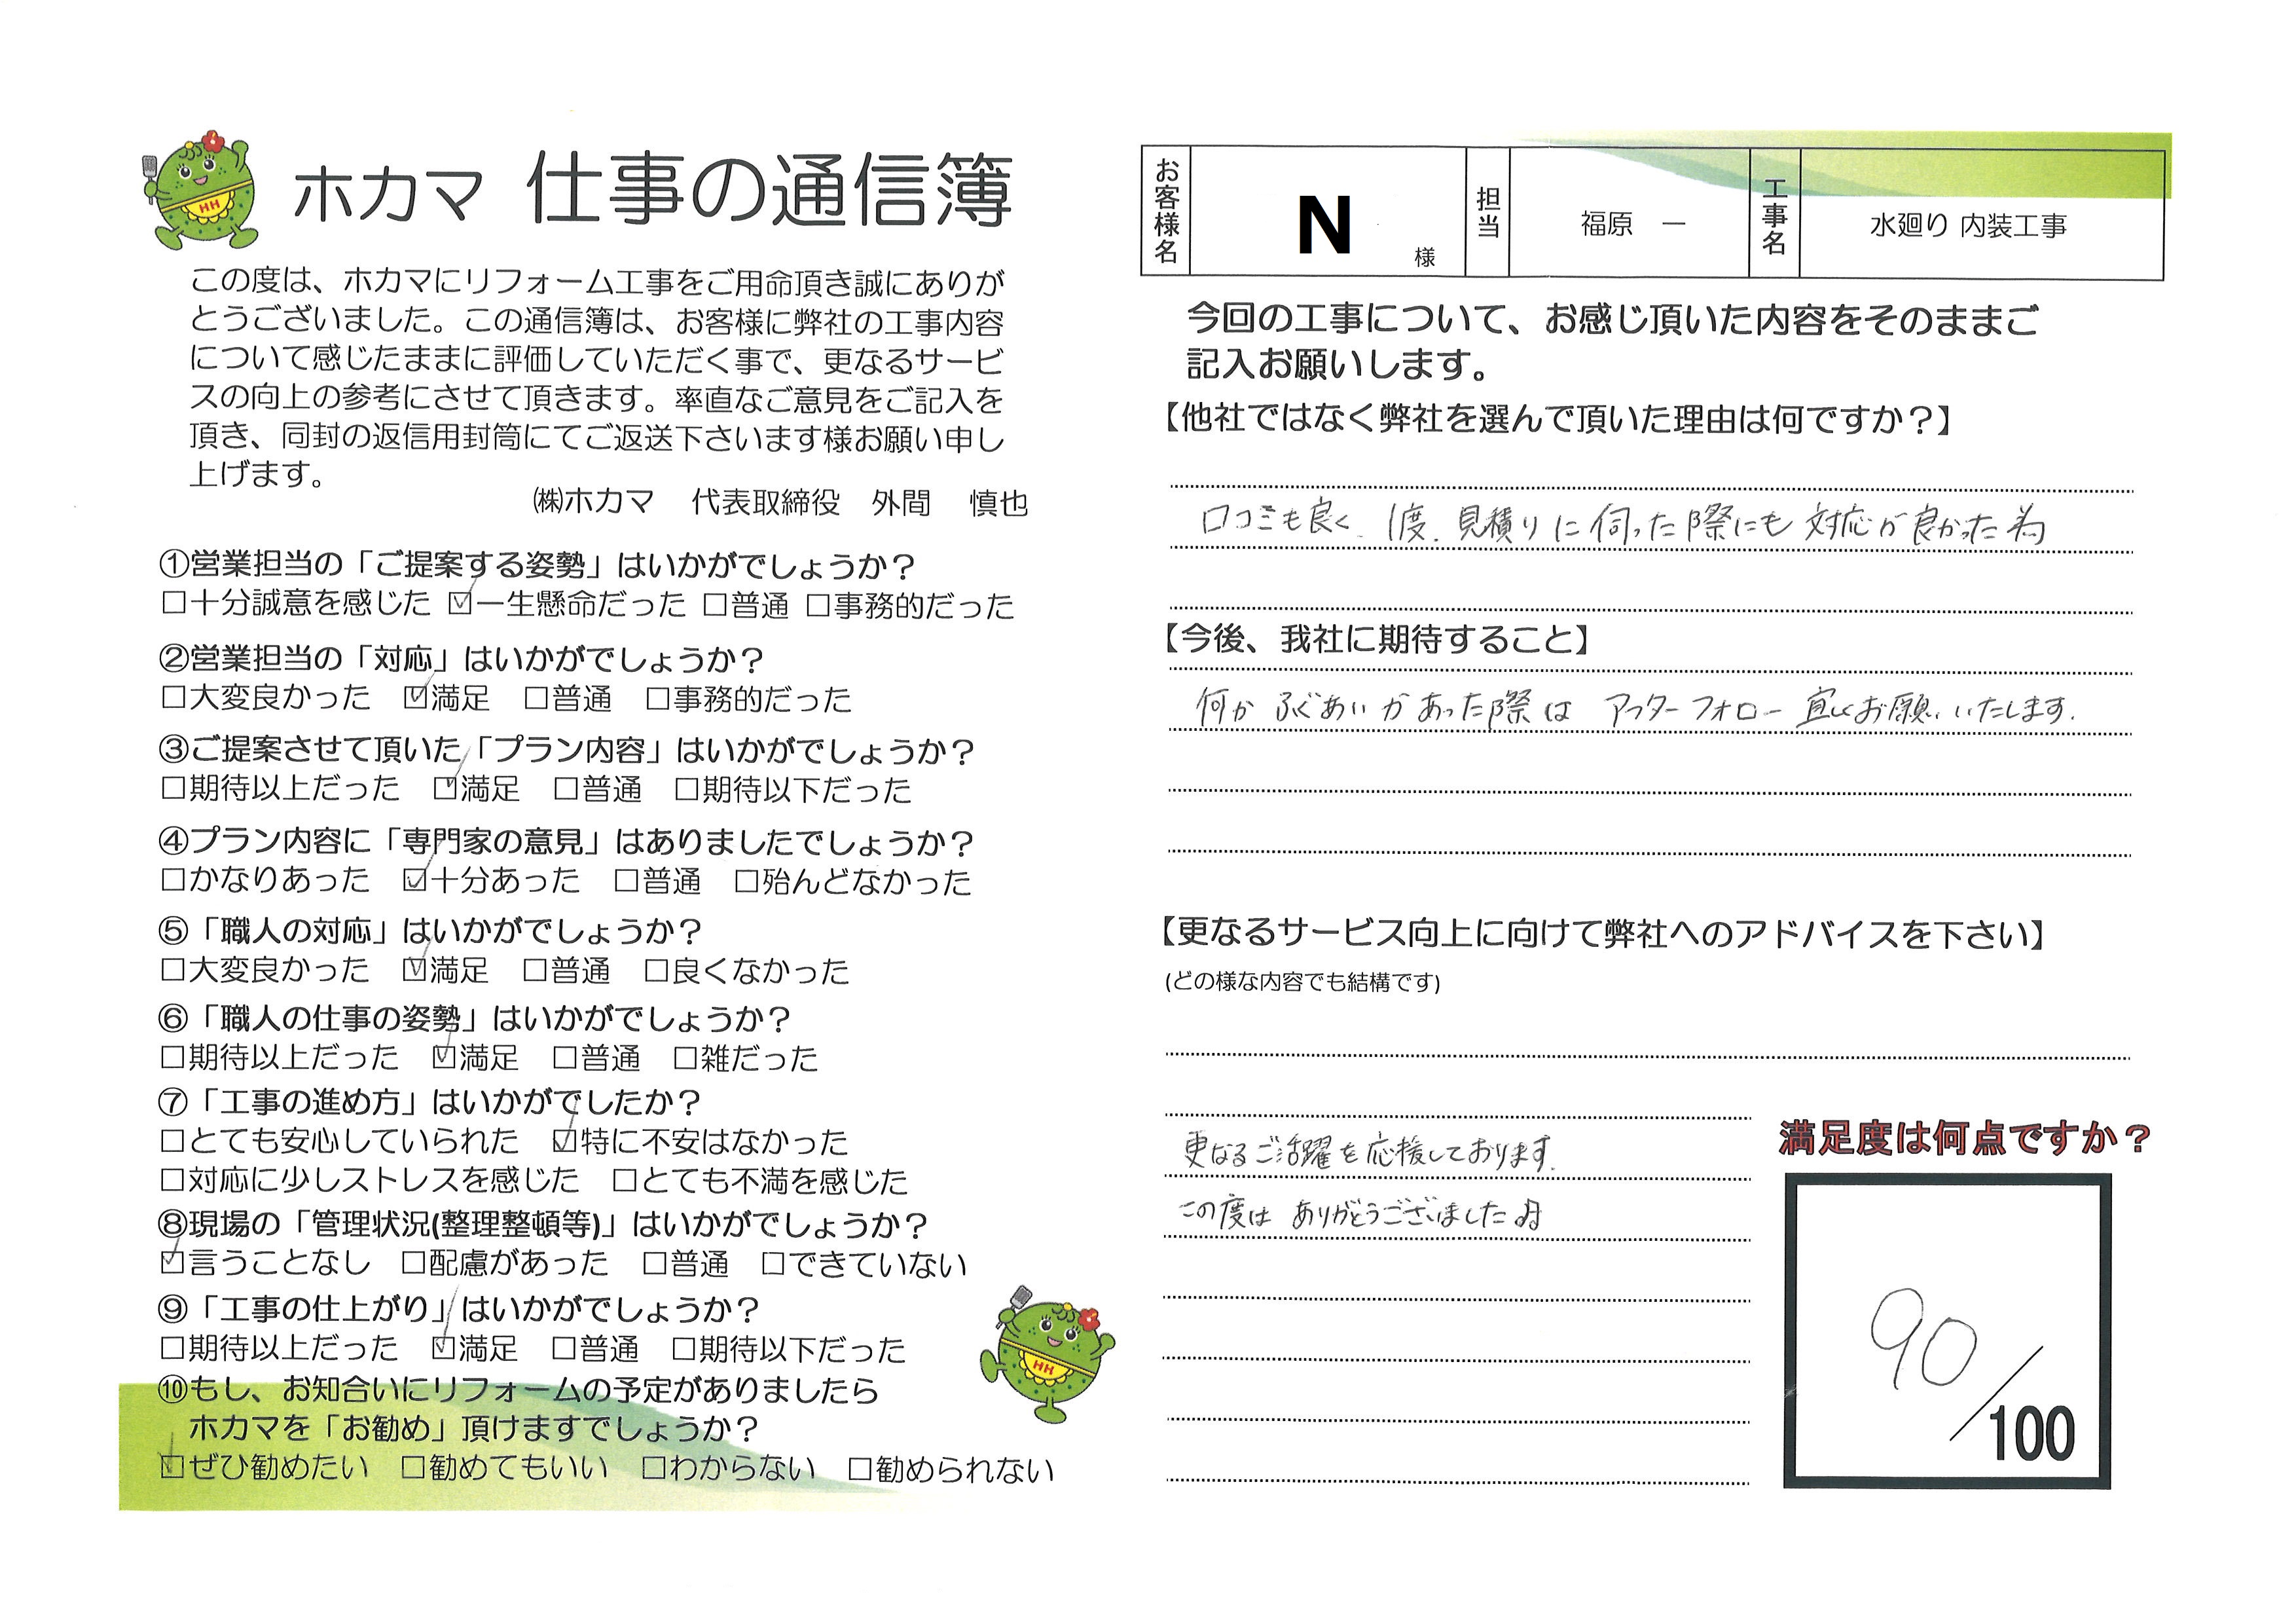 ホカマ 仕事の通信簿
この度は、ホカマにリフォーム工事をご用命頂き誠にありが
とうございました。この通信簿は、お客様に弊社の工事内容
について感じたままに評価していただく事で、更なるサービ
スの向上の参考にさせて頂きます。率直なご意見をご記入を
頂き、同封の返信用封筒にてご返送下さいます様お願い申し
上げます。
㈱ホカマ 代表取締役 外間 慎也
①営業担当の「ご提案する姿勢」はいかがでしょうか?
□十分誠意を感じた ☑一生懸命だった □普通 □事務的だった
②営業担当の「対応」はいかがでしょうか?
□大変良かった ☑満足 □普通 □事務的だった
③ご提案させて頂いた「プラン内容」はいかがでしょうか?
□期待以上だった ☑満足 □普通 □期待以下だった
④プラン内容に「専門家の意見」はありましたでしょうか?
□かなりあった ☑十分あった □普通 □殆んどなかった
⑤「職人の対応」はいかがでしょうか?
□大変良かった ☑満足 □普通 □良くなかった
⑥「職人の仕事の姿勢」はいかがでしょうか?
□期待以上だった ☑満足 □普通 □雑だった
⑦「工事の進め方」はいかがでしたか?
□とても安心していられた ☑特に不安はなかった
□対応に少しストレスを感じた □とても不満を感じた
⑧現場の「管理状況(整理整頓等)」はいかがでしょうか?
☑言うことなし □配慮があった □普通 □できていない
⑨「工事の仕上がり」はいかがでしょうか?
□期待以上だった ☑満足 □普通 □期待以下だった
⑩もし、お知合いにリフォームの予定がありましたら
ホカマを「お勧め」頂けますでしょうか?
☑ぜひ勧めたい □勧めてもいい □わからない □勧められない
HH
HH
お客様名 N 様 担当 福原 一 工事名 水廻り 内装工事
今回の工事について、お感じ頂いた内容をそのままご
記入お願いします。
【他社ではなく弊社を選んで頂いた理由は何ですか?】
口コミも良く、1度、見積りに伺った際にも対応が良かった為
【今後、我社に期待すること】
何かふぐあいがあった際は アフターフォロー宜しくお願いいたします.
【更なるサービス向上に向けて弊社へのアドバイスを下さい】
(どの様な内容でも結構です)
更なるご活躍を応援しております.
この度は ありがとうございました♫
満足度は何点ですか?
90/100